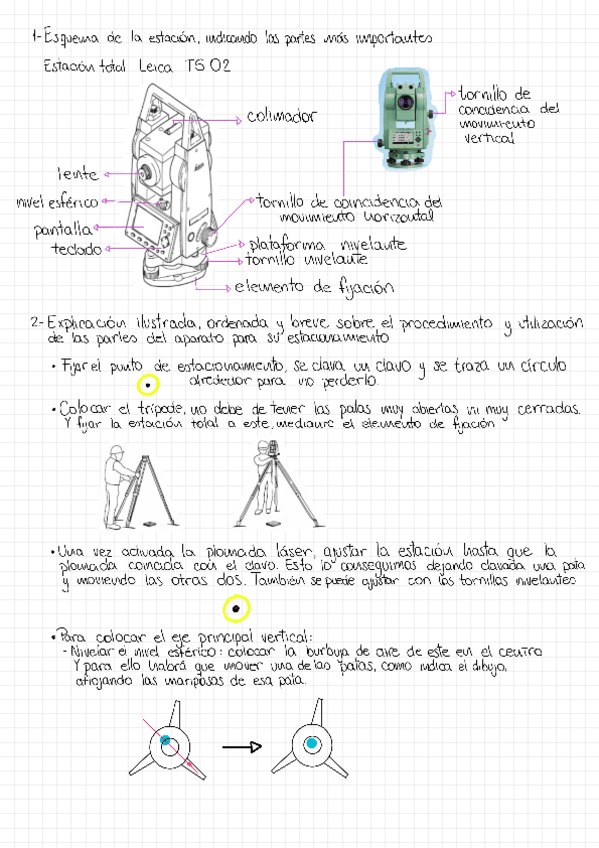 1-Esquema de la estación, indicando las partes más importantes
Estación total Leica TS 02
colimador
tornillo de
coincidencia del
movimiento
vertical
lente
nivel esférico
pantalla
teclado
tornillo de coincidencia del
movimiento horizontal
plataforma nivelante
tornillo nivelante
elemento de fijación
2- Explicación ilustrada, ordenada y breve sobre el procedimiento y utilización
de las partes del aparato para su estacionamiento
• Fijar el punto de estacionamiento, se clava un clavo y se traza un círculo
alrededor para no perderlo.
• Colocar el trípode, no debe de tener las patas muy abiertas ni muy cerradas.
Y fijar la estación total a este, mediante el elemento de fijación
• Una vez activada la plomada láser, ajustar la estación hasta que la
plomada coincida con el clavo. Esto lo conseguimos dejando clavada una pata
y moviendo las otras dos. También se puede ajustar con los tornillos nivelantes
• Para colocar el eje principal vertical:
- Nivelar el nivel esférico: colocar la burbuja de aire de este en el centro
Y para ello habrá que mover una de las patas, como indica el dibujo,
aflojando las mariposas de esa pata.